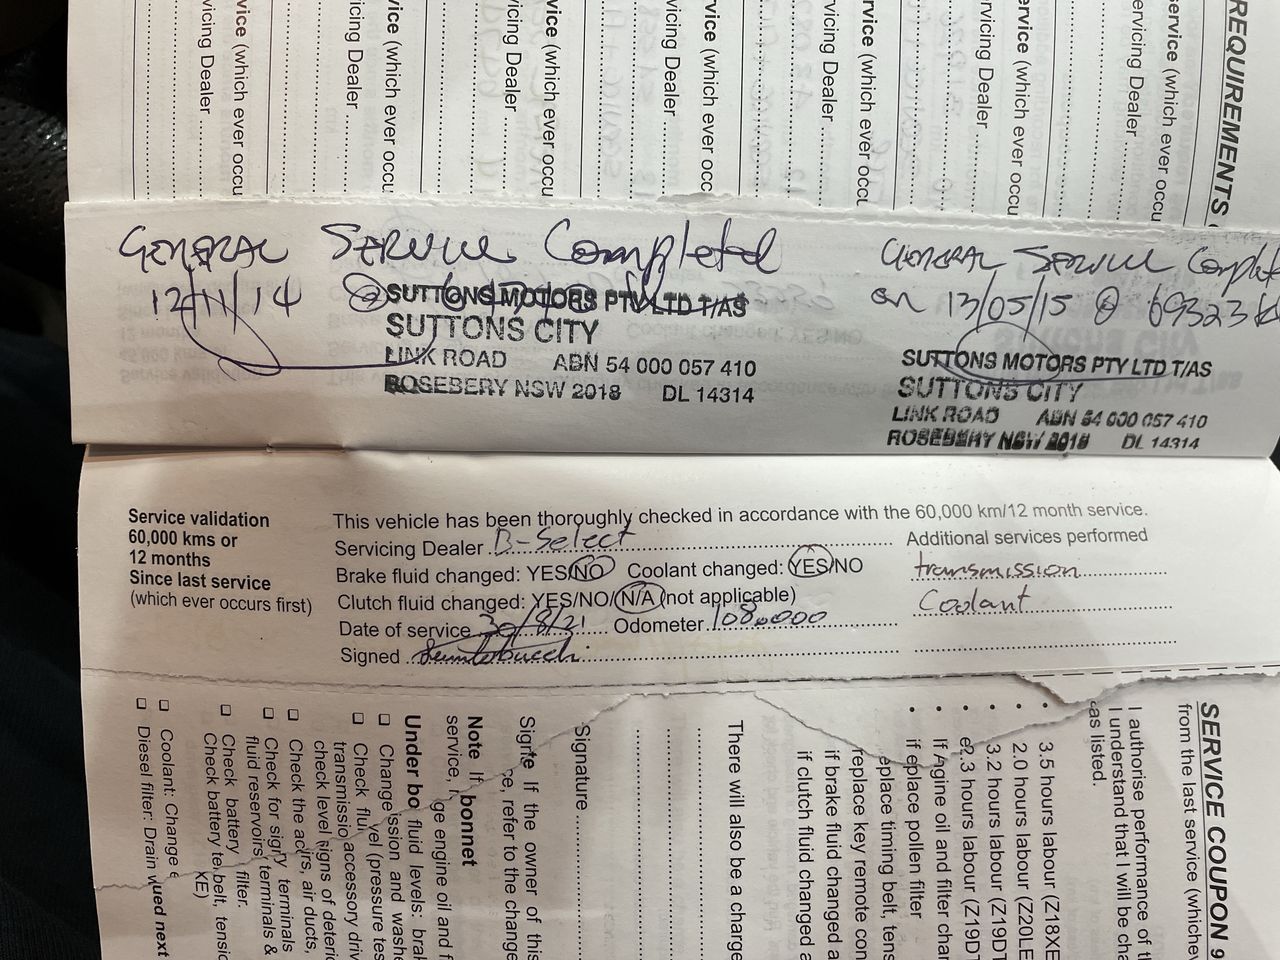 REQUIREMENTS
service (which ever occu
Servicing Dealer
ervice (which ever occu
rvicing Dealer
service (which ever occu
vicing Dealer
vice (which ever occ
icing Dealer
vice (which ever occu
icing Dealer
vice (which ever occu
icing Dealer
rvice (which ever occu
vicing Dealer
GENERAL SERVICE Completed
12/11/14 @
SUTTONS MOTORS PTY LTD T/AS
SUTTONS CITY
LINK ROAD ABN 54 000 057 410
ROSEBERY NSW 2018 DL 14314
GENERAL SERVICE Complet
on 13/05/15 @ 69323 k
SUTTONS MOTORS PTY LTD T/AS
SUTTONS CITY
LINK ROAD ABN 54 000 057 410
ROSEBERY NSW 2018 DL 14314
Service validation
60,000 kms or
12 months
Since last service
(which ever occurs first)
This vehicle has been thoroughly checked in accordance with the 60,000 km/12 month service.
Servicing Dealer B-Select
Brake fluid changed: YES/NO Coolant changed: YES/NO
Clutch fluid changed: YES/NO/N/A (not applicable)
Date of service 30/8/21 Odometer 108,000
Signed
Additional services performed
transmission
Coolant
SERVICE COUPON 9
from the last service (whichev
I authorise performance of th
I understand that I will be cha
as listed.
• 3.5 hours labour (Z18XE
• 2.0 hours labour (Z20LE
• 3.2 hours labour (Z19DT
2.3 hours labour (Z19DT
engine oil and filter char
• replace pollen filter
replace timing belt, tens
replace key remote con
if brake fluid changed a
if clutch fluid changed a
There will also be a charge
Signature
If the owner of this
refer to the change
Note If
service,
bonnet
ge engine oil and f
Under bo
fluid levels: bral
☐ Change
ssion and washe
☐ Check flu
vel (pressure tes
transmissio
accessory driv
☐ Check the ac
check level
signs of deterio
irs, air ducts,
☐ Check for sign
ry terminals
fluid reservoirs
terminals &
☐ Check battery
filter.
Check battery te
belt, tensio
XE)
☐ Coolant: Change
☐ Diesel filter: Drain w
ued next